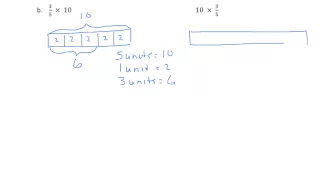 b. 3/5 × 10
10 × 3/5
10
2 2 2 2 2
6
5 units = 10
1 unit = 2
3 units = 6